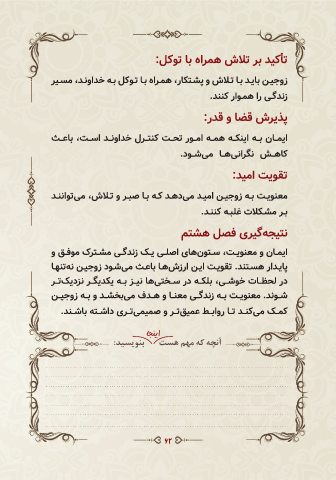 تأکید بر تلاش همراه با توکل:
زوجین باید با تلاش و پشتکار، همراه با توکل به خداوند، مسیر
زندگی را هموار کنند.
پذیرش قضا و قدر:
ایمان به اینکه همه امور تحت کنترل خداوند است، باعث
کاهش نگرانی‌ها می‌شود.
تقویت امید:
معنویت به زوجین امید می‌دهد که با صبر و تلاش، می‌توانند
بر مشکلات غلبه کنند.
نتیجه‌گیری فصل هشتم
ایمان و معنویت، ستون‌های اصلی یک زندگی مشترک موفق و
پایدار هستند. تقویت این ارزش‌ها باعث می‌شود زوجین نه‌تنها
در لحظات خوشی، بلکه در سختی‌ها نیز به یکدیگر نزدیک‌تر
شوند. معنویت به زندگی معنا و هدف می‌بخشد و به زوجین
کمک می‌کند تا روابط عمیق‌تر و صمیمی‌تری داشته باشند.
آنچه که مهم هست اینجا بنویسید:
۶۲